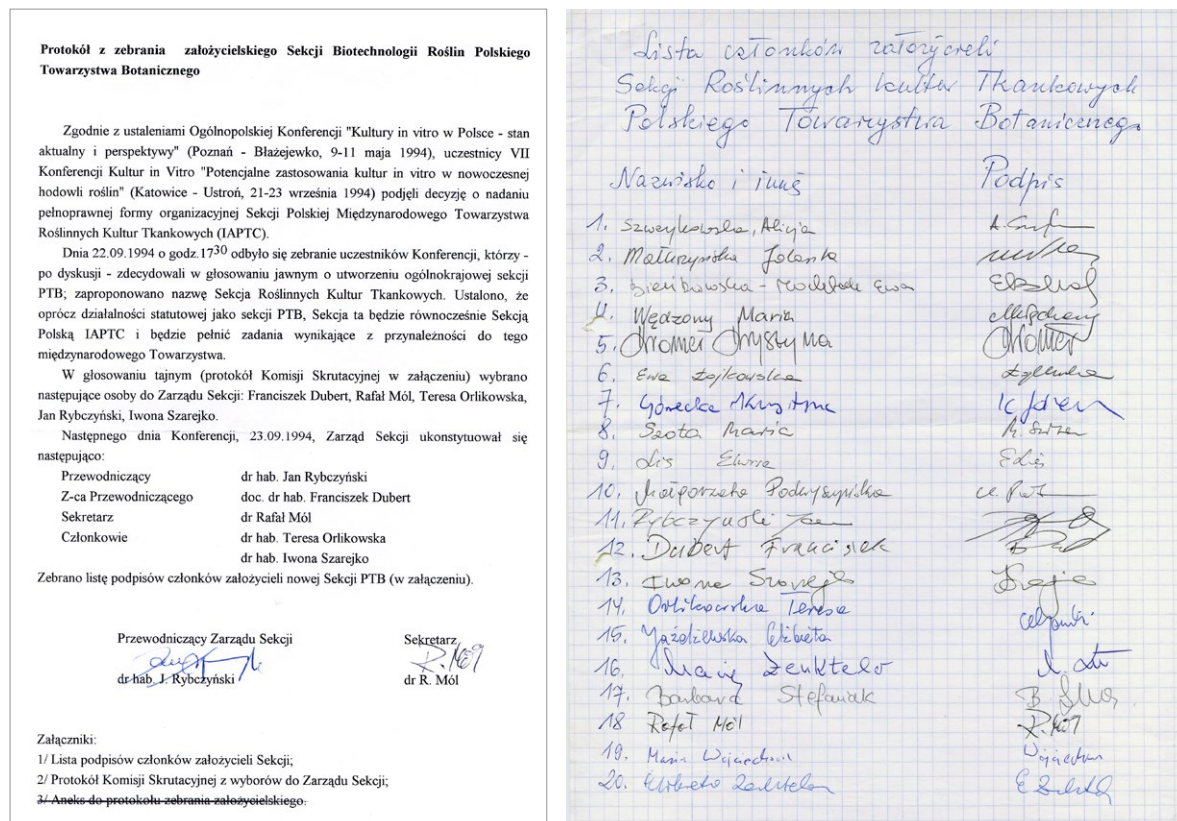 Protokół z zebrania założycielskiego Sekcji Biotechnologii Roślin Polskiego
Towarzystwa Botanicznego
Zgodnie z ustaleniami Ogólnopolskiej Konferencji "Kultury in vitro w Polsce - stan
aktualny i perspektywy" (Poznań - Błażejewko, 9-11 maja 1994), uczestnicy VII
Konferencji Kultur in Vitro "Potencjalne zastosowania kultur in vitro w nowoczesnej
hodowli roślin" (Katowice - Ustroń, 21-23 września 1994) podjęli decyzję o nadaniu
pełnoprawnej formy organizacyjnej Sekcji Polskiej Międzynarodowego Towarzystwa
Roślinnych Kultur Tkankowych (IAPTC).
Dnia 22.09.1994 o godz.1730 odbyło się zebranie uczestników Konferencji, którzy -
po dyskusji - zdecydowali w głosowaniu jawnym o utworzeniu ogólnokrajowej sekcji
PTB; zaproponowano nazwę Sekcja Roślinnych Kultur Tkankowych. Ustalono, że
oprócz działalności statutowej jako sekcji PTB, Sekcja ta będzie równocześnie Sekcją
Polską IAPTC i będzie pełnić zadania wynikające z przynależności do tego
międzynarodowego Towarzystwa.
W głosowaniu tajnym (protokół Komisji Skrutacyjnej w załączeniu) wybrano
następujące osoby do Zarządu Sekcji: Franciszek Dubert, Rafał Mól, Teresa Orlikowska,
Jan Rybczyński, Iwona Szarejko.
Następnego dnia Konferencji, 23.09.1994, Zarząd Sekcji ukonstytuował się
następująco:
Przewodniczący dr hab. Jan Rybczyński
Z-ca Przewodniczącego doc. dr hab. Franciszek Dubert
Sekretarz dr Rafał Mól
Członkowie dr hab. Teresa Orlikowska
dr hab. Iwona Szarejko
Zebrano listę podpisów członków założycieli nowej Sekcji PTB (w załączeniu).
Przewodniczący Zarządu Sekcji Sekretarz
R. Mól
dr hab. J. Rybczyński dr R. Mól
Załączniki:
1/ Lista podpisów członków założycieli Sekcji;
2/ Protokół Komisji Skrutacyjnej z wyborów do Zarządu Sekcji;
3/ Aneks do protokołu zebrania założycielskiego.
Lista członków założycieli
Sekcji Roślinnych kultur Tkankowych
Polskiego Towarzystwa Botanicznego
Nazwisko i imię Podpis
1. Szweykowska, Alicja
2. Małuszyńska Jolanta
3. Ewa
4. Wędzony Maria
5. Chomei Chrystyna
6. Ewa
7. Górecka Krystyna
8. Szota Maria
9. Lis
10. Małgorzata Podwyszyńska
11. Rybczyński Jan
12. Dubert Franciszek
13. Iwona Szarejko
14. Orlikowska Teresa
15. Jażdżewska Elżbieta
16. Maciej Zenkteler
17. Barbara Stefaniak
18 Rafał Mól R. Mól
19. Maria
20. Elżbieta Zenkteler